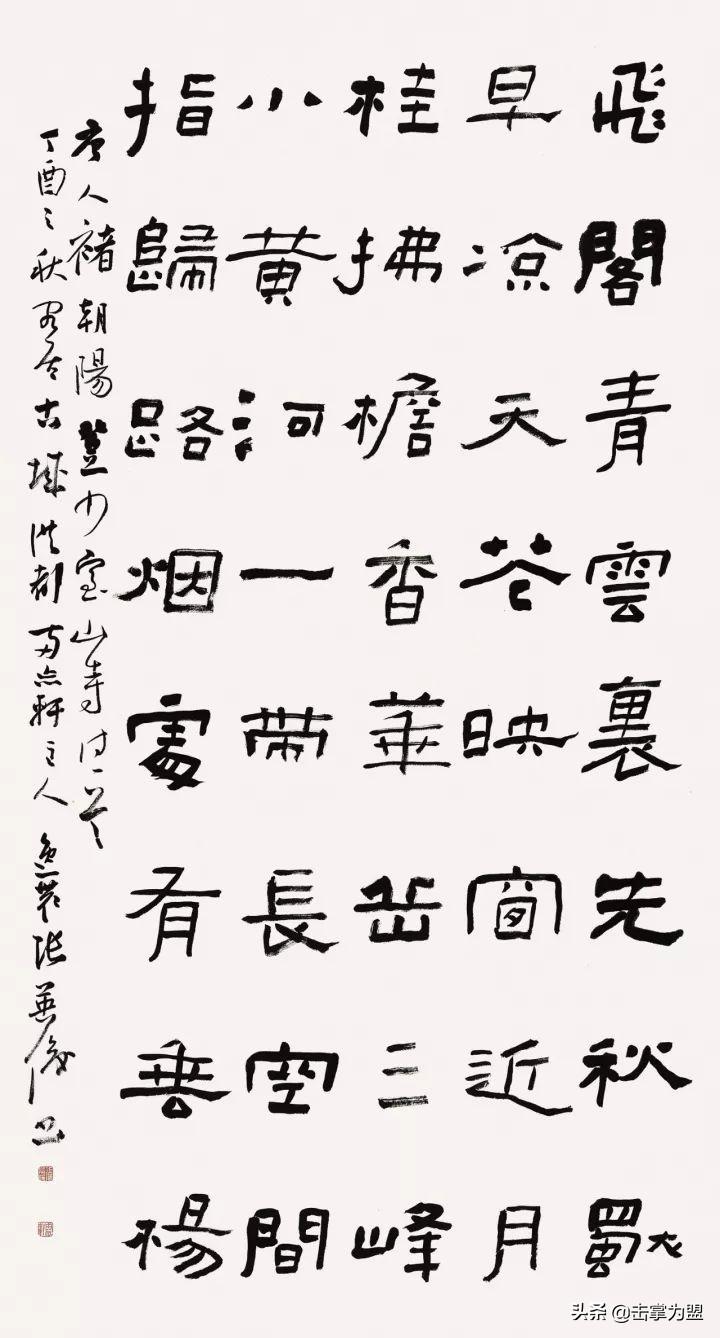 飛閣青雲裏先秋獨
早凉天花映窗近月
桂拂檐香華岳三峰
小黃河一帶長空間
指歸路烟處有垂楊
唐人褚朝陽登少室山寺詩一首
丁酉之秋客居古城洪都兩点軒主人張英俊書
头条 @击掌为盟